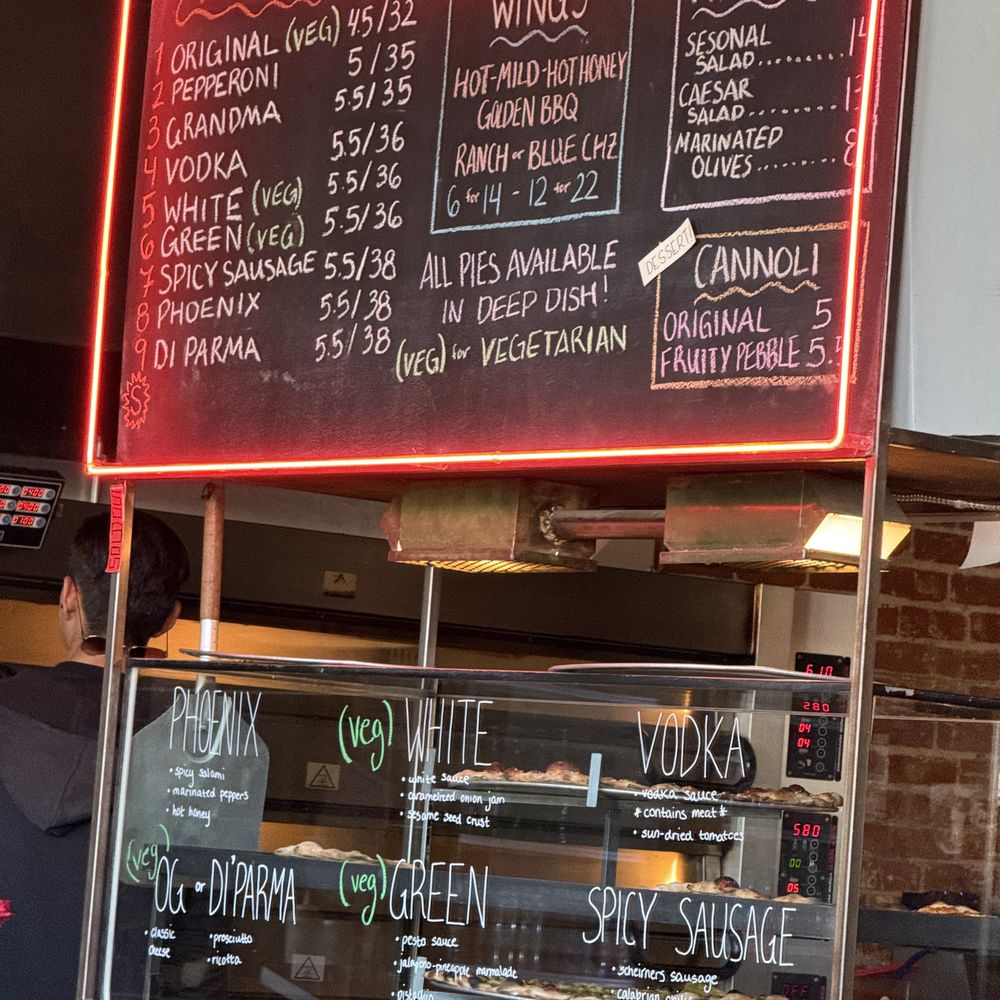 1 ORIGINAL (VEG) 4.5/32
2 PEPPERONI 5/35
3 GRANDMA 5.5/35
4 VODKA 5.5/36
5 WHITE (VEG) 5.5/36
6 GREEN (VEG) 5.5/36
7 SPICY SAUSAGE 5.5/38
8 PHOENIX 5.5/38
9 DI PARMA 5.5/38
S
WINGS
HOT-MILD-HOT HONEY
GOLDEN BBQ
RANCH or BLUE CHZ
6 for 14 - 12 for 22
ALL PIES AVAILABLE
IN DEEP DISH!
(VEG) for VEGETARIAN
SESONAL
SALAD
CAESAR
SALAD
MARINATED
OLIVES
DESSERT!
CANNOLI
ORIGINAL 5
FRUITY PEBBLE 5.
PHOENIX
• spicy salami
• marinated peppers
• hot honey
(veg) WHITE
• white sauce
• caramelized onion jam
• sesame seed crust
VODKA
• vodka sauce
*contains meat*
• sun-dried tomatoes
(veg) OG or DI'PARMA
• classic
cheese
• prosciutto
• ricotta
(veg) GREEN
• pesto sauce
• jalapeño-pineapple marmalade
• pistachio
SPICY SAUSAGE
• scheiners sausage
• calabrian
610
280
04
04
580
00
05